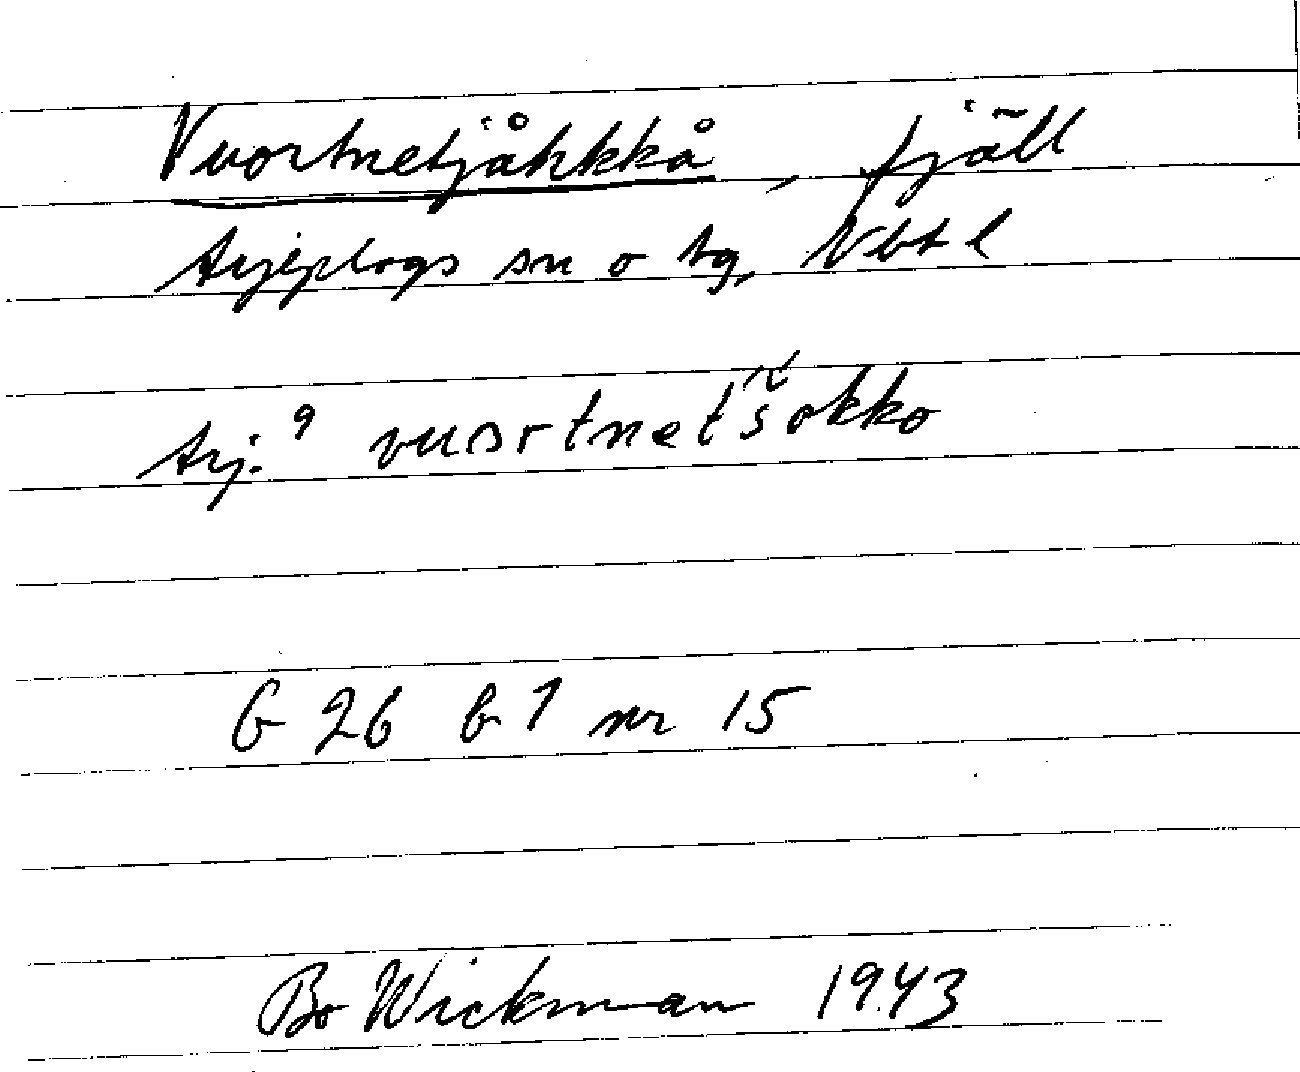 Vuortnetjåhkkå, fjäll
Arjeplogs sn o tg, Nbt l
Arj. 9 vuortnet'šokko
G 26 b 1 nr 15
Bo Wickman 1943